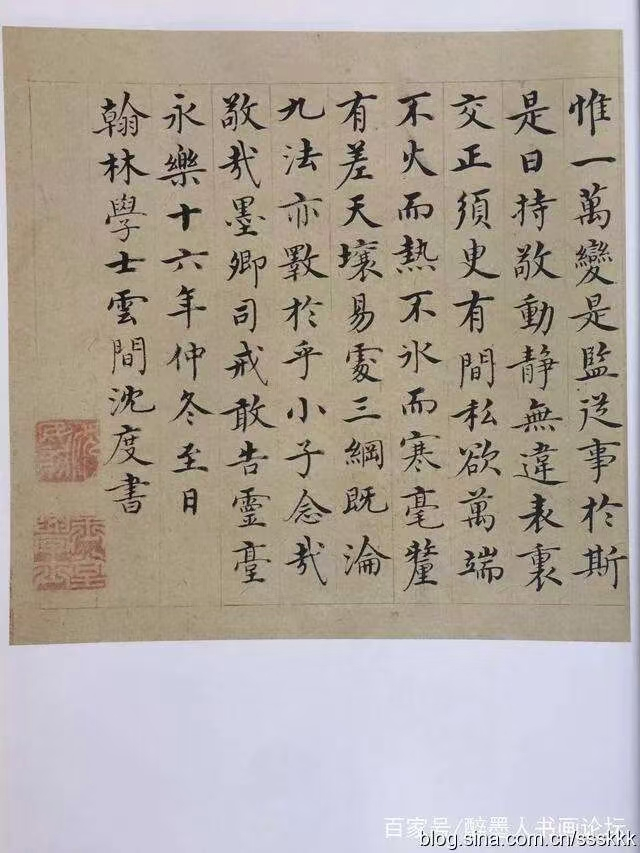 惟一萬變是監從事於斯
是曰持敬動靜無違表裏
交正須臾有間私欲萬端
不火而熱不氷而寒毫釐
有差天壤易處三綱既淪
九法亦斁於乎小子念哉
敬哉墨卿司戒敢告靈臺
永樂十六年仲冬至日
翰林學士雲間沈度書
百家号/醉墨人书画论坛
blog.sina.com.cn/ssskkk